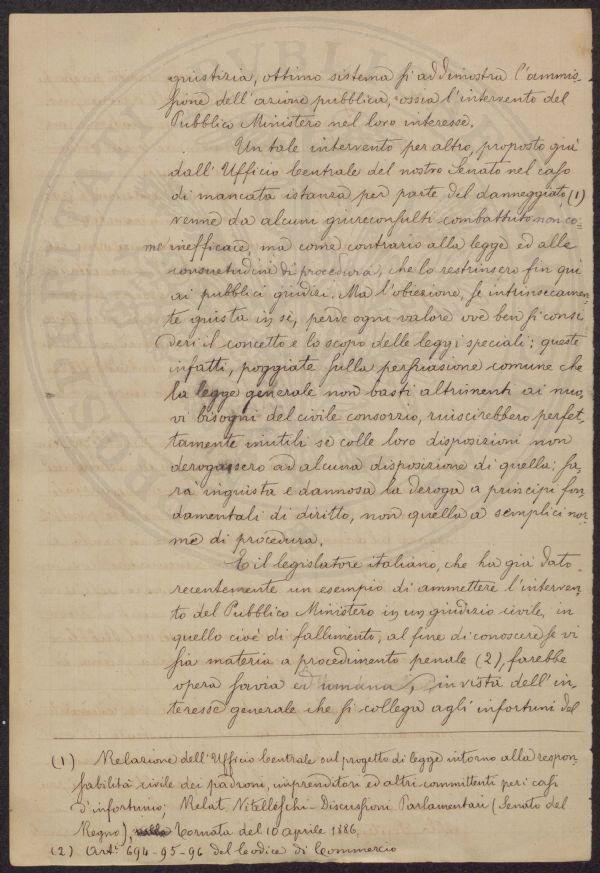 giustizia, ottimo sistema si addimostra l'ammis-
sione dell'azione pubblica, ossia l'intervento del
Pubblico Ministero nel loro interesse.
Un tale intervento per altro, proposto già
dall'Ufficio Centrale del nostro Senato nel caso
di mancata istanza per parte del danneggiato, (1)
venne da alcuni giureconsulti combattuto non co-
me inefficace, ma come contrario alla legge ed alle
consuetudini di procedura, che lo restrinsero fin qui
ai pubblici giudizi. Ma l'obiezione, se intrinsecamen-
te giusta in sè, perde ogni valore ove ben si consi
deri il concetto e lo scopo delle leggi speciali; queste
infatti, poggiate sulla persuasione comune che
la legge generale non basti altrimenti ai nuo-
vi bisogni del civile consorzio, riuscirebbero perfet-
tamente inutili se colle loro disposizioni non
derogassero ad alcuna disposizione di quella; sa-
rà ingiusta e dannosa la deroga a principi fon-
damentali di diritto, non quella a semplici nor-
me di procedura.
E il legislatore italiano, che ha già dato
recentemente un esempio di ammettere l'interven-
to del Pubblico Ministero in un giudizio civile, in
quello cioè di fallimento, al fine di conoscere se vi
sia materia a procedimento penale (2), farebbe
opera savia ed umana, in vista dell'in-
teresse generale che si collega agli infortuni del
(1) Relazione dell'Ufficio Centrale sul progetto di legge intorno alla respon-
sabilità civile dei padroni, imprenditori ed altri committenti per i casi
d'infortunio. Relat. Vitelleschi - Discussioni Parlamentari (Senato del
Regno), Tornata del 10 aprile 1886.
(2) Art.i 694-95-96 del Codice di Commercio